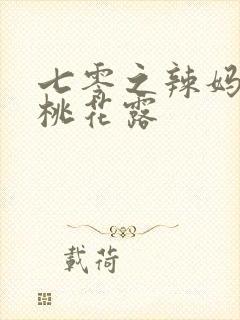 七零之辣妈
桃花露
載荷